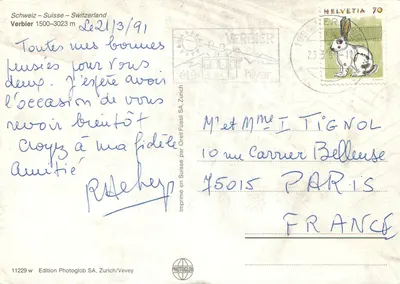 Schweiz – Suisse – Switzerland
Verbier 1500–3023 m
Le 21/3/91
Toutes mes bonnes
pensées pour vous
deux. J'espère avoir
l'occasion de vous
revoir bientôt
Croyez à ma fidèle
amitié
HELVETIA 70
VERBIER
Imprimé en Suisse par Orell Füssli SA, Zurich
Mr et Mme I TIGNOL
10 rue Carrier Belleuse
75015 PARIS
FRANCE
11229 w Edition Photoglob SA, Zurich/Vevey
PHOTOGLOB